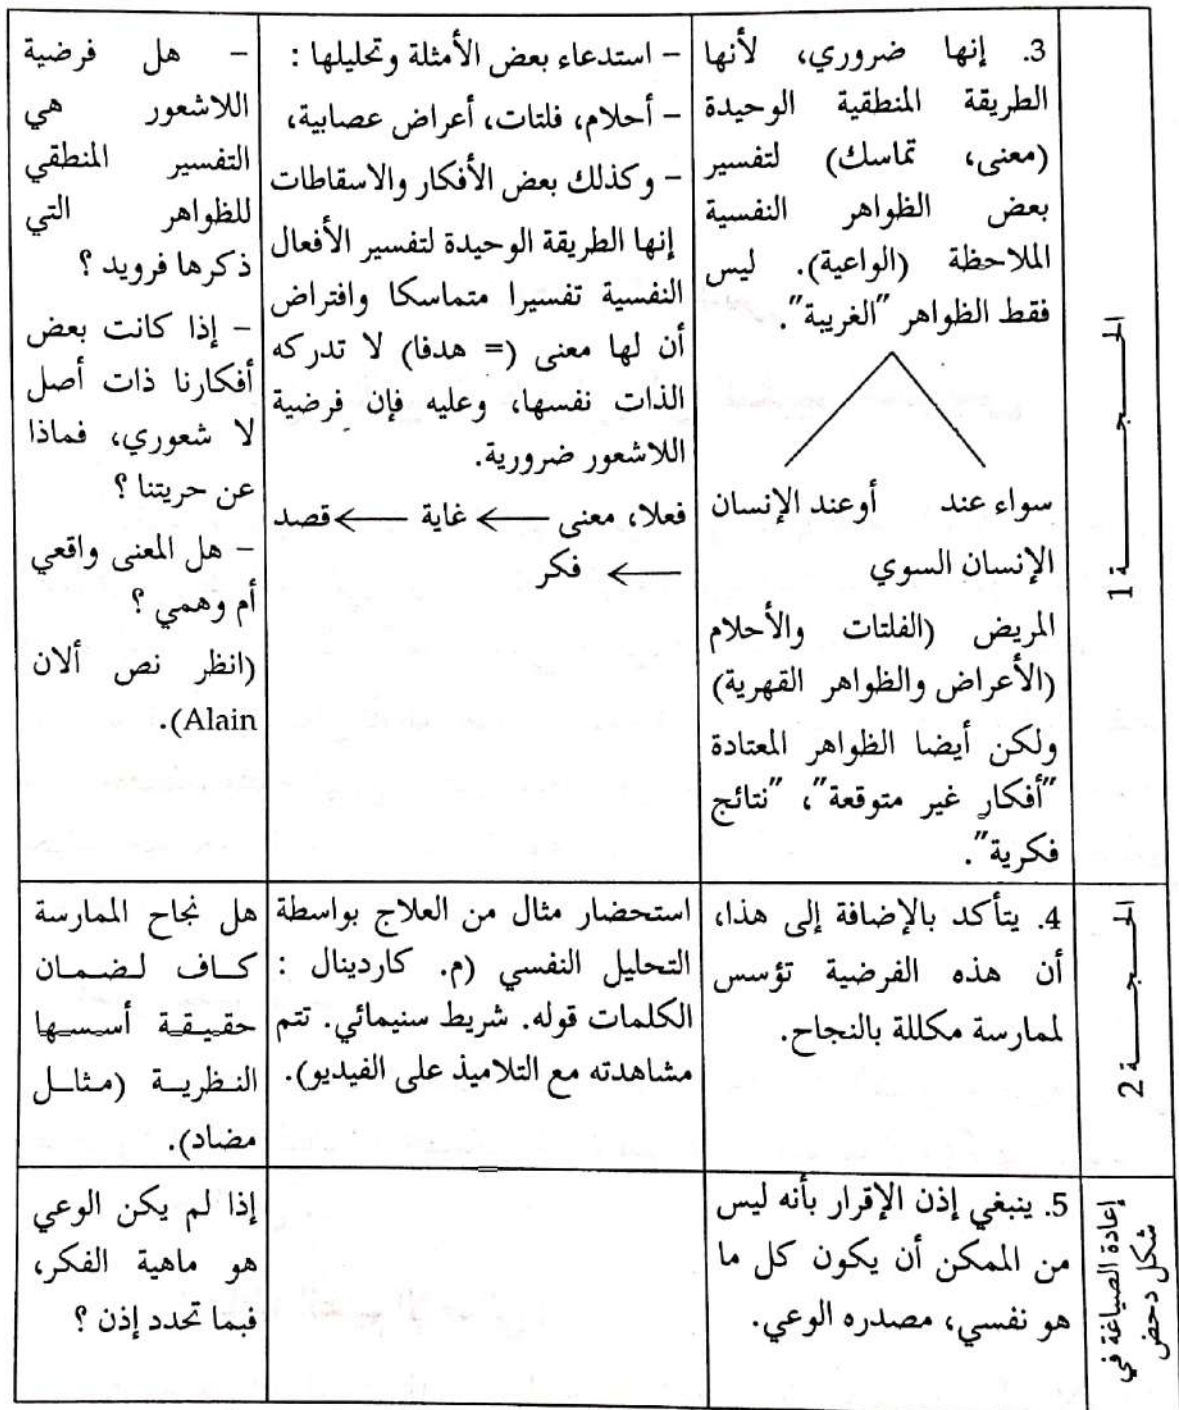 الحـــجـــة 1
3. إنها ضروري، لأنها
الطريقة المنطقية الوحيدة
(معنى، تماسك) لتفسير
بعض الظواهر النفسية
الملاحظة (الواعية). ليس
فقط الظواهر "الغريبة".
سواء عند أوعند الإنسان
الإنسان السوي
المريض (الفلتات والأحلام
(الأعراض والظواهر القهرية)
ولكن أيضا الظواهر المعتادة
"أفكار غير متوقعة"، "نتائج
فكرية".
– استدعاء بعض الأمثلة وتحليلها :
– أحلام، فلتات، أعراض عصابية،
– وكذلك بعض الأفكار والاسقاطات
إنها الطريقة الوحيدة لتفسير الأفعال
النفسية تفسيرا متماسكا وافتراض
أن لها معنى (= هدفا) لا تدركه
الذات نفسها، وعليه فإن فرضية
اللاشعور ضرورية.
فعلا، معنى ← غاية ← قصد
← فكر
– هل فرضية
اللاشعور هي
التفسير المنطقي
للظواهر التي
ذكرها فرويد ؟
– إذا كانت بعض
أفكارنا ذات أصل
لا شعوري، فماذا
عن حريتنا ؟
– هل المعنى واقعي
أم وهمي ؟
(انظر نص ألان
Alain).
الحـــجـــة 2
4. يتأكد بالإضافة إلى هذا،
أن هذه الفرضية تؤسس
لممارسة مكللة بالنجاح.
استحضار مثال من العلاج بواسطة
التحليل النفسي (م. كاردينال :
الكلمات قوله. شريط سنيمائي. تتم
مشاهدته مع التلاميذ على الفيديو).
هل نجاح الممارسة
كاف لضمان
حقيقة أسسها
النظرية (مثال
مضاد).
إعادة الصياغة في
شكل دحض
5. ينبغي إذن الإقرار بأنه ليس
من الممكن أن يكون كل ما
هو نفسي، مصدره الوعي.
إذا لم يكن الوعي
هو ماهية الفكر،
فبما تحدد إذن ؟